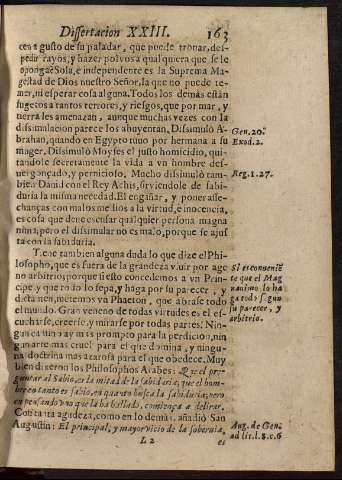 Dissertacion XXIII. 163
cen a gusto de su paladar, que puede tronar, des-
pedir rayos, y hazer polvos a qualquiera que se le
oponga: Sola, e independente es la Suprema Ma-
gestad de Dios nuestro Señor, la que no puede te-
mer, ni esperar cosa alguna. Todos los demàs estàn
sugetos a tantos terrores, y riesgos, que por mar, y
tierra les amenazan, aunque muchas vezes con la
dissimulacion parece los ahuyentan. Dissimulò A-
brahan, quando en Egypto tuvo por hermana a su
muger. Dissimulò Moyses el justo homicidio, qui-
tandole secretamente la vida a vn hombre des-
vergonçado, y pernicioso. Mucho dissimulò tam-
bien David con el Rey Achis, sirviendole de sabi-
duria la misma necedad. El engañar, y poner asse-
chanças con malos medios a la virtud, e inocencia,
es cosa que deve escusar qualquier persona magna
nima; pero el dissimular no es malo, porque se ajus
ta con la sabiduria.
Gen. 20.
Exod. 2.
Reg. 1. 27.
Tiene tambien alguna duda lo que dize el Phi-
losopho, que es fuera de la grandeza vivir por age
no arbitrio; porque si esto concedemos a vn Prin-
cipe, y que todo lo sepa, y haga por su parecer, y
dictamen, metemos vn Phaeton, que abrase todo
el mundo. Gran veneno de todas virtudes es el es-
cucharse, creerse, y mirarse por todas partes. Nin-
gun camino ay mas prompto para la perdicion, nin
gun arte mas cruel para el que domina, y ningu-
na doctrina mas azarosa para el que obedece. Muy
bien dixeron los Philosophos Arabes: Que el pre-
guntar al Sabio, es la mitad de la sabiduria, que el hom-
bre en tanto es sabio, en quanto busca la sabiduria, pero
en pensando que la ha hallado, comiença a delirar.
Con tanta agudeza, como en lo demàs, añadiò San
Augustin: El principal, y mayor vicio de la sobervia,
Si es conveniẽte
que el Mag
nanimo lo ha
ga todo segun
su parecer, y
arbitrio.
Aug. de Gen.
ad lit. l. 8. c. 6
L 2 es